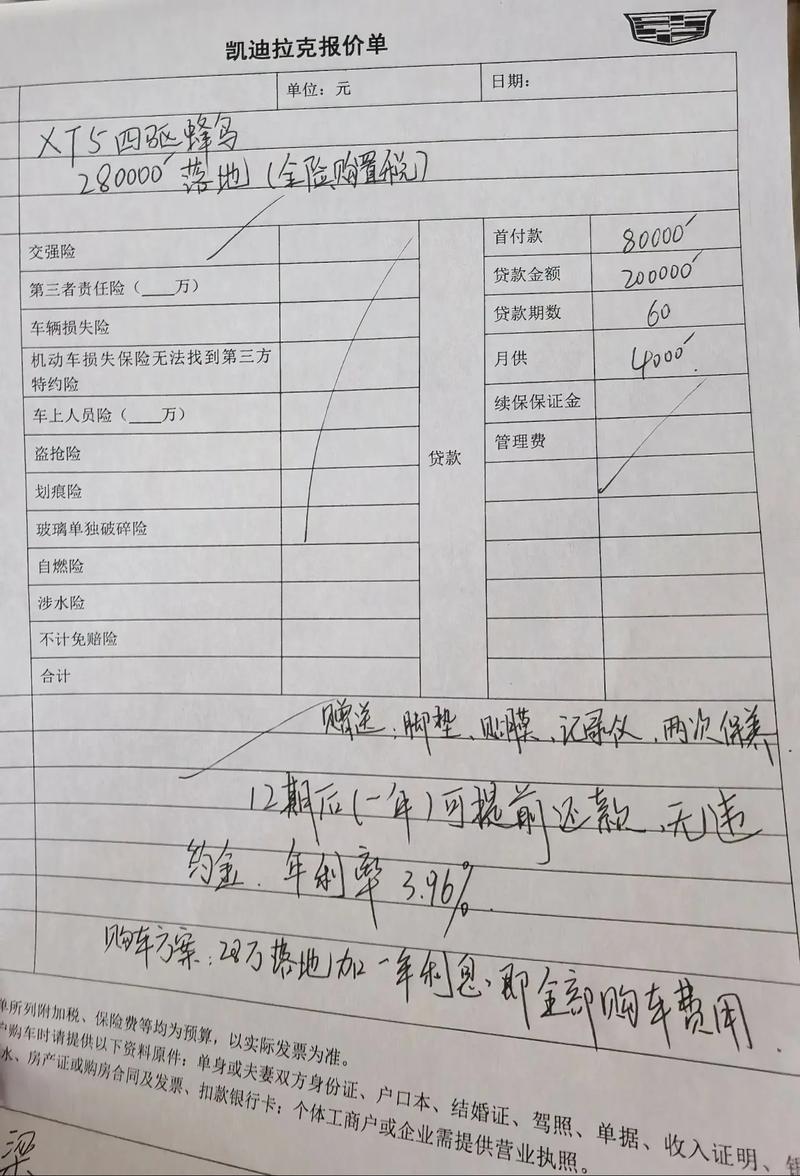 凯迪拉克报价单
单位：元
日期：
XT5四驱蜂鸟
280000 落地（全险购置税）
交强险
第三者责任险（____万）
车辆损失险
机动车损失保险无法找到第三方
特约险
车上人员险（____万）
盗抢险
划痕险
玻璃单独破碎险
自燃险
涉水险
不计免赔险
合计
贷款
首付款 80000
贷款金额 200000
贷款期数 60
月供 4000
续保保证金
管理费
赠送：脚垫、贴膜、记录仪、两次保养
12期后（一年）可提前还款、无违
约金. 年利率 3.96%.
购车方案：28万落地加一年利息、即全部购车费用.
单所列附加税、保险费等均为预算，以实际发票为准。
户购车时请提供以下资料原件：单身或夫妻双方身份证、户口本、结婚证、驾照、单据、收入证明、
水、房产证或购房合同及发票、扣款银行卡；个体工商户或企业需提供营业执照。
梁